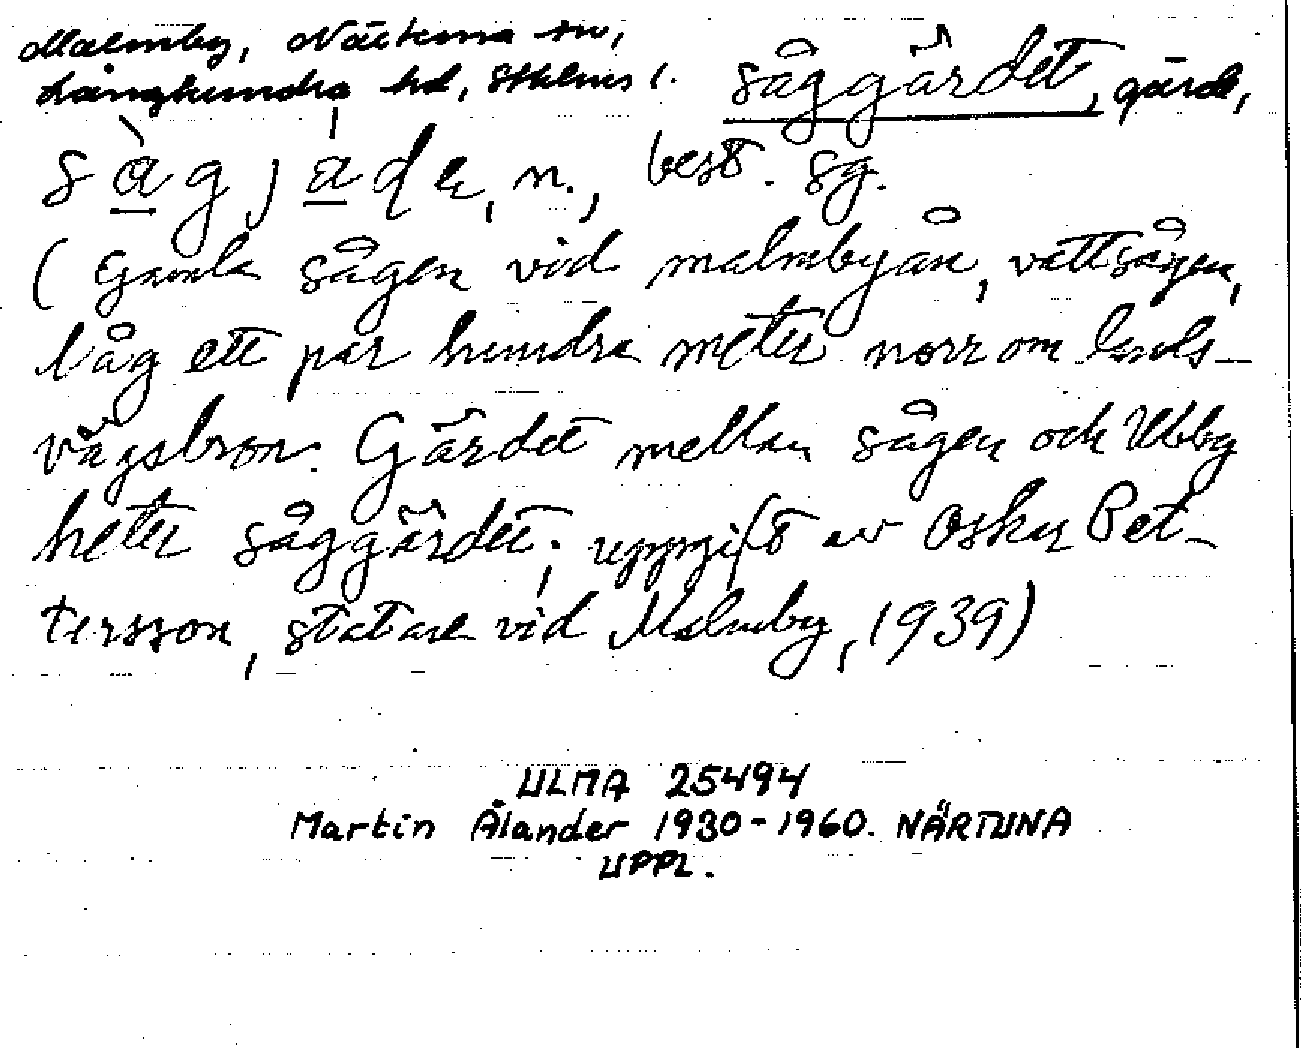 Malmby, Närtuna sn,
Långhundra hd, Sthlms l. såggärdet, gärde,
sàgjádε, n., best. sg.
(Gamla sågen vid Malmbyån, vattsågen,
låg ett par hundra meter norr om lands-
vägsbron. Gärdet mellan sågen och Ubby
heter såggärdet; uppgift av Oskar Pet-
tersson, statare vid Malmby, 1939)
ULMA 25494
Martin Ålander 1930-1960. NÄRTUNA
UPPL.